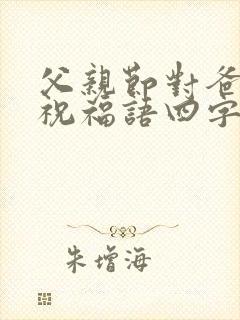 父親節對爸
祝福語四字
朱增海